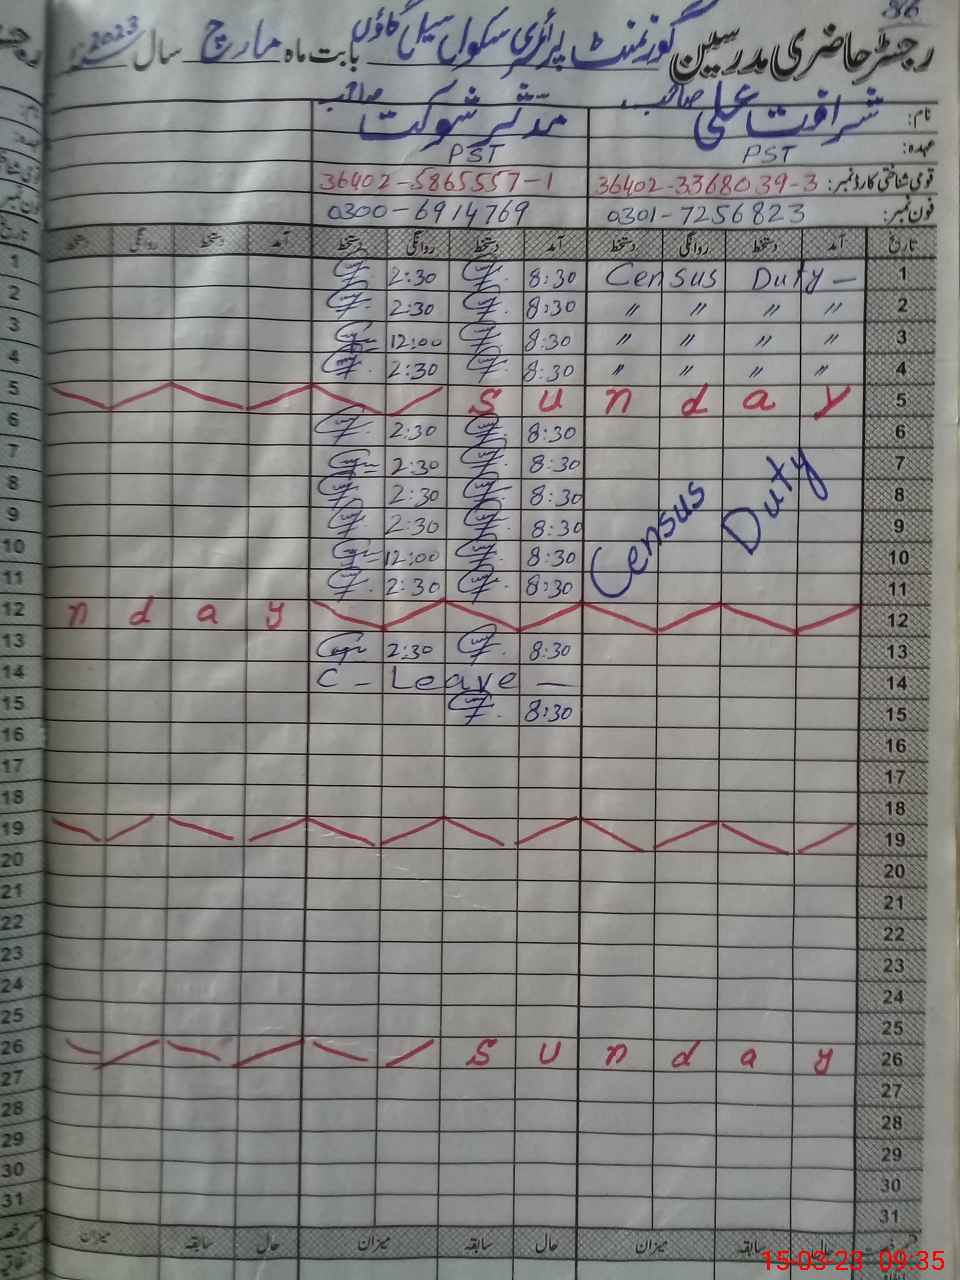 86
رجسٹر حاضری مدرسین گورنمنٹ پرائمری سکول سیل گاؤں بابت ماہ مارچ سال 2023
نام: شرافت علی صاحب مدثر شوکت صاحب
عہدہ: PST PST
قومی شناختی کارڈ نمبر: 36402-3368039-3 36402-5865557-1
فون نمبر: 0301-7256823 0300-6914769
تاریخ آمد دستخط روانگی دستخط آمد دستخط روانگی دستخط آمد دستخط روانگی دستخط
1 Census Duty - 8:30 2:30 1
2 〃 〃 〃 〃 8:30 2:30 2
3 〃 〃 〃 〃 8:30 12:00 3
4 〃 〃 〃 〃 8:30 2:30 4
5 S u n d a y 5
6 8:30 2:30 6
7 8:30 2:30 7
8 Census Duty 8:30 2:30 8
9 8:30 2:30 9
10 8:30 12:00 10
11 8:30 2:30 11
12 n d a y 12
13 8:30 2:30 13
14 C - Leave - 14
15 8:30 15
16 16
17 17
18 18
19 19
20 20
21 21
22 22
23 23
24 24
25 25
26 S u n d a y 26
27 27
28 28
29 29
30 30
31 31
سابقہ میزان حال سابقہ میزان حال سابقہ میزان
15-03-23 09:35